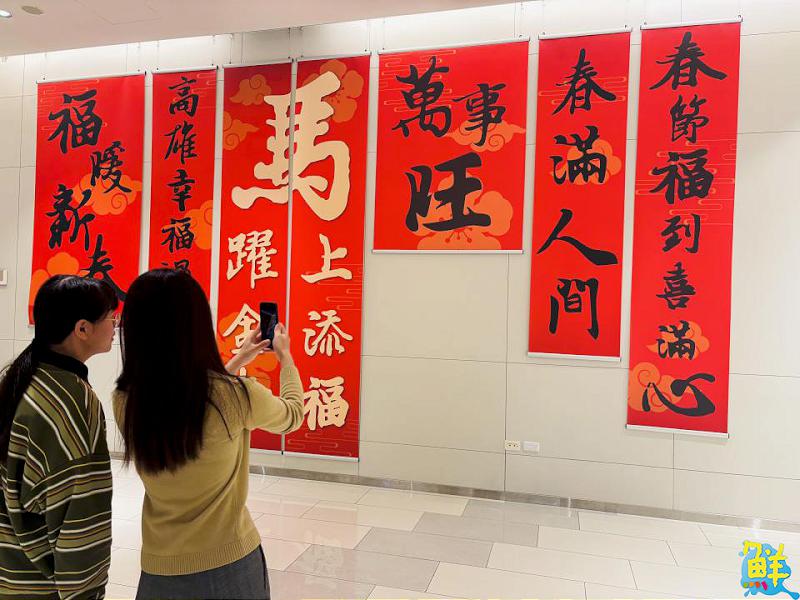 福暖新春
高雄幸福
馬
躍金
上添福
萬事旺
春滿人間
春節福到喜滿心
鮮